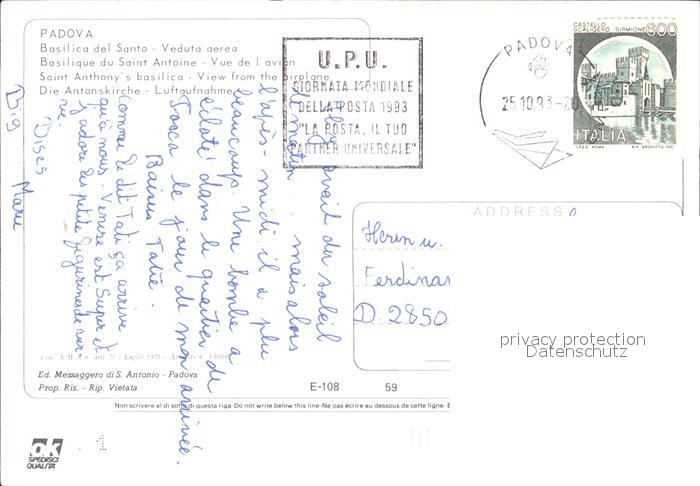 PADOVA
Basilica del Santo - Veduta aerea
Basilique du Saint Antoine - Vue de l'avion
Saint Anthony's basilica - View from the airplane
Die Antonskirche - Luftaufnahme
U.P.U.
GIORNATA MONDIALE
DELLA POSTA 1993
"LA POSTA, IL TUO
PARTNER UNIVERSALE"
PADOVA
25.10.93-20
CASTELLO
SCALIGERO SIRMIONE
600
ITALIA
I.P.Z.S. ROMA
ADDRESS
Herrn u.
Ferdinan
D. 2850
privacy protection
Datenschutz
avait du soleil
le matin mais alors
l'après-midi il a plu
beaucoup. Une bombe a
éclaté dans le quartier de
Tosca le jour de mon arrivée.
Baisers Tatie.
Comme le dit Tati ça arrive
qu'à nous. Venise est super et
j'adore les petites figurines de ver
re.
Bises
Big Marie
Ed. Messaggero di S. Antonio - Padova
Prop. Ris. - Rip. Vietata
E-108
59
Non scrivere al di sotto di questa riga-Do not write below this line-Ne pas écrire au dessous de cette ligne-
ok
SPEDISCI
QUALITÀ
1